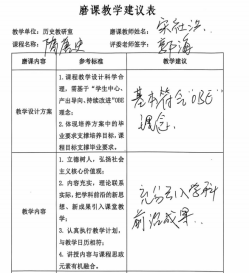 磨课教学建议表
教学单位：历史教研室 磨课教师姓名：
课程名称： 评委老师签字：
磨课内容 参考标准 磨课建议
教学设计方案
1.课程教学设计科学合
理，需基于“学生中心、
产出导向、持续改进”OBE
理念；
2.体现培养方案中的毕
业要求支撑培养目标，课
程目标支撑毕业要求。
基本符合“OBE”
理念.
教学内容
1.立德树人，弘扬社会
主义核心价值观；
2.内容充实，理论联系
实际，把学科前沿的新思
想、新成果引入课堂教
学；
3.认真执行教学计划，
与教学日历相符；
4.讲授内容与课程思政
元素有机融合。
充分引入学科
前沿成果.